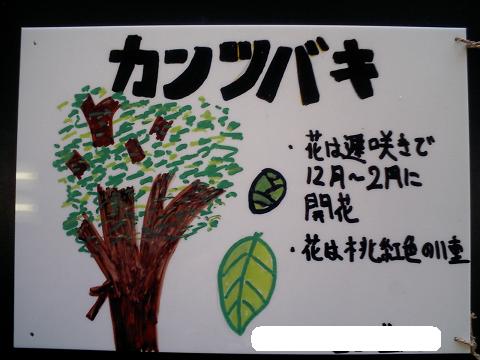 カンツバキ
・花は遅咲きで
12月〜2月に
開花
・花は桃紅色の八重